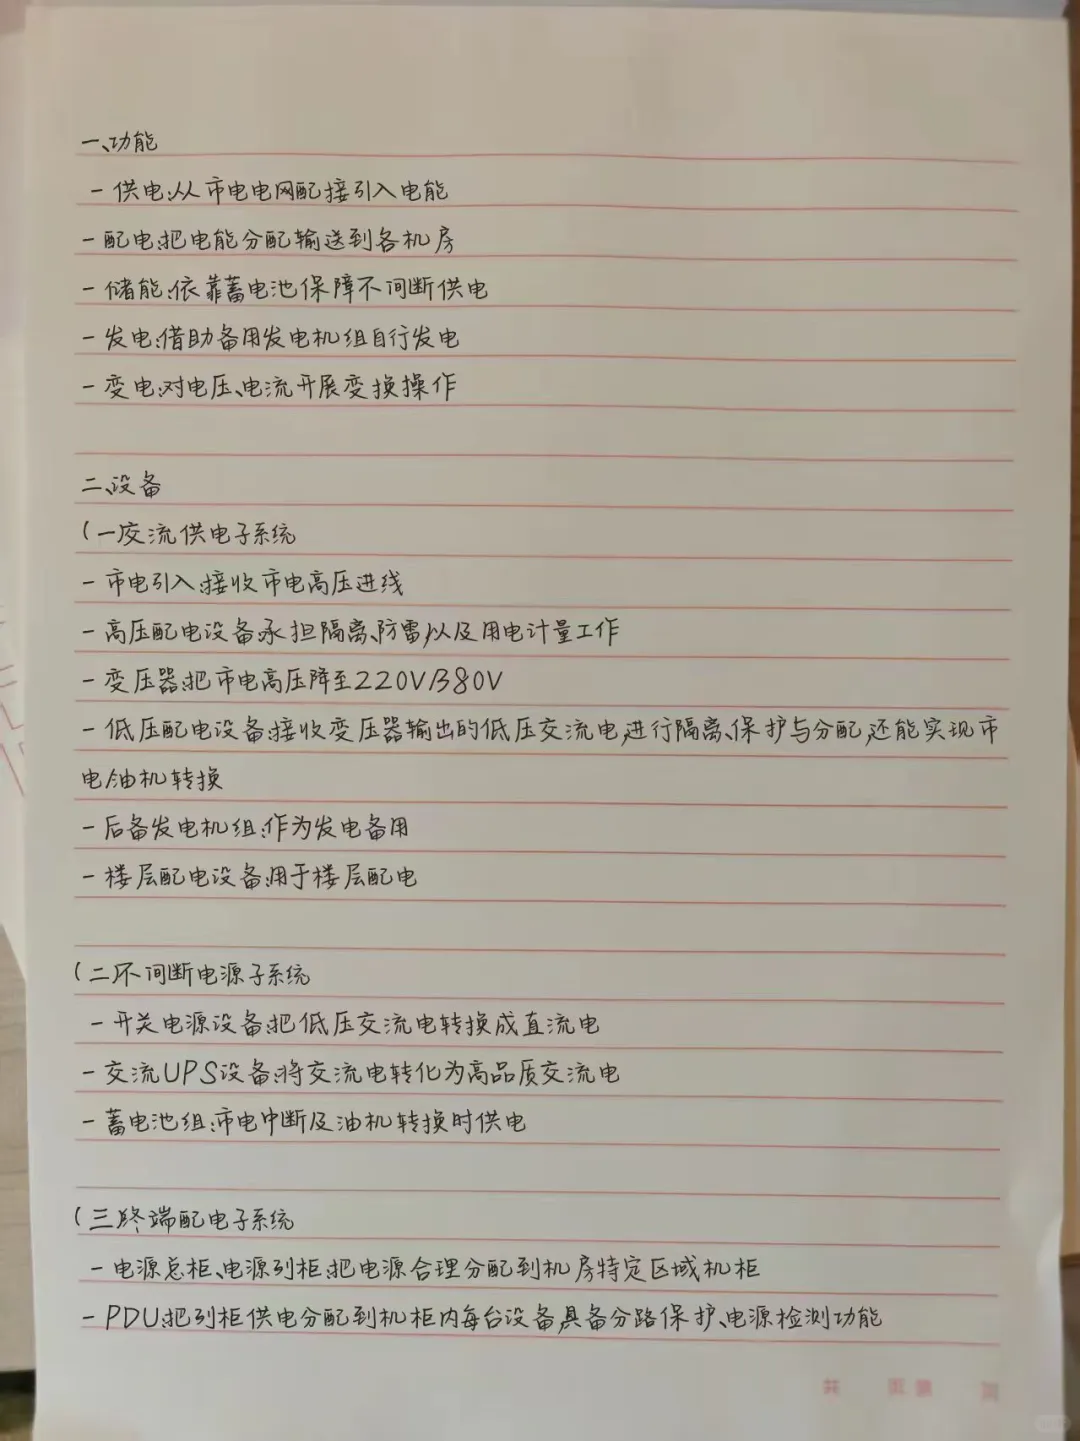 一、功能
- 供电:从市电电网配接引入电能
- 配电:把电能分配输送到各机房
- 储能:依靠蓄电池保障不间断供电
- 发电:借助备用发电机组自行发电
- 变电:对电压、电流开展变换操作
二、设备
(一)交流供电子系统
- 市电引入:接收市电高压进线
- 高压配电设备:承担隔离、防雷以及用电计量工作
- 变压器:把市电高压降至220V/380V
- 低压配电设备:接收变压器输出的低压交流电,进行隔离、保护与分配,还能实现市
电/油机转换
- 后备发电机组:作为发电备用
- 楼层配电设备:用于楼层配电
(二)不间断电源子系统
- 开关电源设备:把低压交流电转换成直流电
- 交流UPS设备:将交流电转化为高品质交流电
- 蓄电池组:市电中断及油机转换时供电
(三)终端配电子系统
- 电源总柜、电源列柜:把电源合理分配到机房特定区域机柜
- PDU:把列柜供电分配到机柜内每台设备,具备分路保护、电源检测功能
共 页 第 页